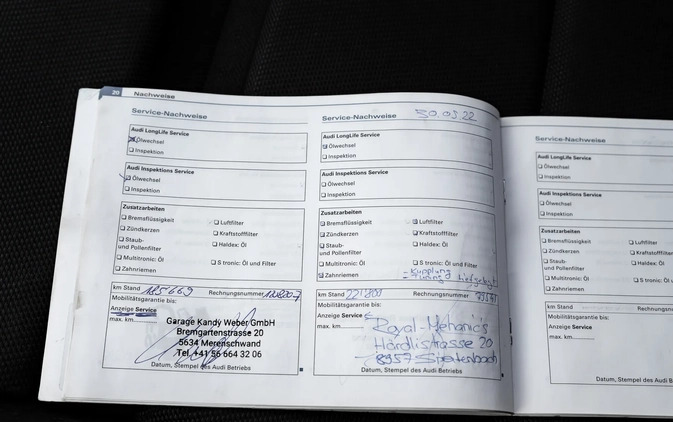 20 Nachweise
Service-Nachweise
Audi LongLife Service
Ölwechsel
Inspektion
Audi Inspektions Service
Ölwechsel
Inspektion
Zusatzarbeiten
Bremsflüssigkeit
Luftfilter
Zündkerzen
Kraftstofffilter
Staub-
und Pollenfilter
Haldex: Öl
Multitronic: Öl
S tronic: Öl und Filter
Zahnriemen
km Stand 185669 Rechnungsnummer
Mobilitätsgarantie bis:
Anzeige Service
max. km
Garage Kandy Weber GmbH
Bremgartenstrasse 20
5634 Merenschwand
Tel. +41 56 664 32 06
Datum, Stempel des Audi Betriebs
Service-Nachweise 30.03.22
Audi LongLife Service
Ölwechsel
Inspektion
Audi Inspektions Service
Ölwechsel
Inspektion
Zusatzarbeiten
Bremsflüssigkeit
Luftfilter
Zündkerzen
Kraftstofffilter
Staub-
und Pollenfilter
Haldex: Öl
Multitronic: Öl
S tronic: Öl und Filter
Zahnriemen
Kupplung
km Stand 221800 Rechnungsnummer
Mobilitätsgarantie bis:
Anzeige Service
max. km
Royal-Mehanics
Härdlistrasse 20
8957 Spreitenbach
Datum, Stempel des Audi Betriebs
Service-Nachweise
Audi LongLife Service
Ölwechsel
Inspektion
Audi Inspektions Service
Ölwechsel
Inspektion
Zusatzarbeiten
Bremsflüssigkeit
Luftfilter
Zündkerzen
Kraftstofffilter
Staub-
und Pollenfilter
Haldex: Öl
Multitronic: Öl
S tronic: Öl
Zahnriemen
km Stand Rechnungsnummer
Mobilitätsgarantie bis:
Anzeige Service
max. km
Datum, Stempel des Audi